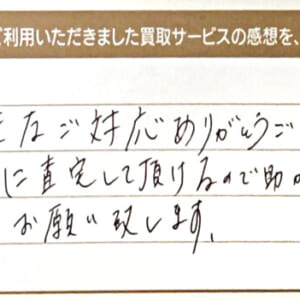 ご利用いただきました買取サービスの感想を、
なご対応ありがとうご
に査定して頂けるので助か
お願い致します。